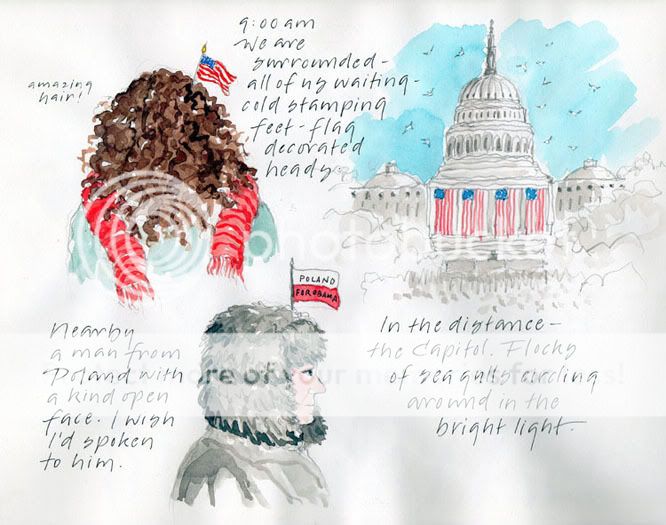 amazing
hair!
9:00 am
we are
surrounded-
all of us waiting-
cold stamping
feet-flag
decorated
heads
POLAND
FOR OBAMA
Nearby
a man from
Poland with
a kind open
face. I wish
I'd spoken
to him.
In the distance-
the Capitol. Flocks
of sea gulls circling
around in the
bright light.
photobucket